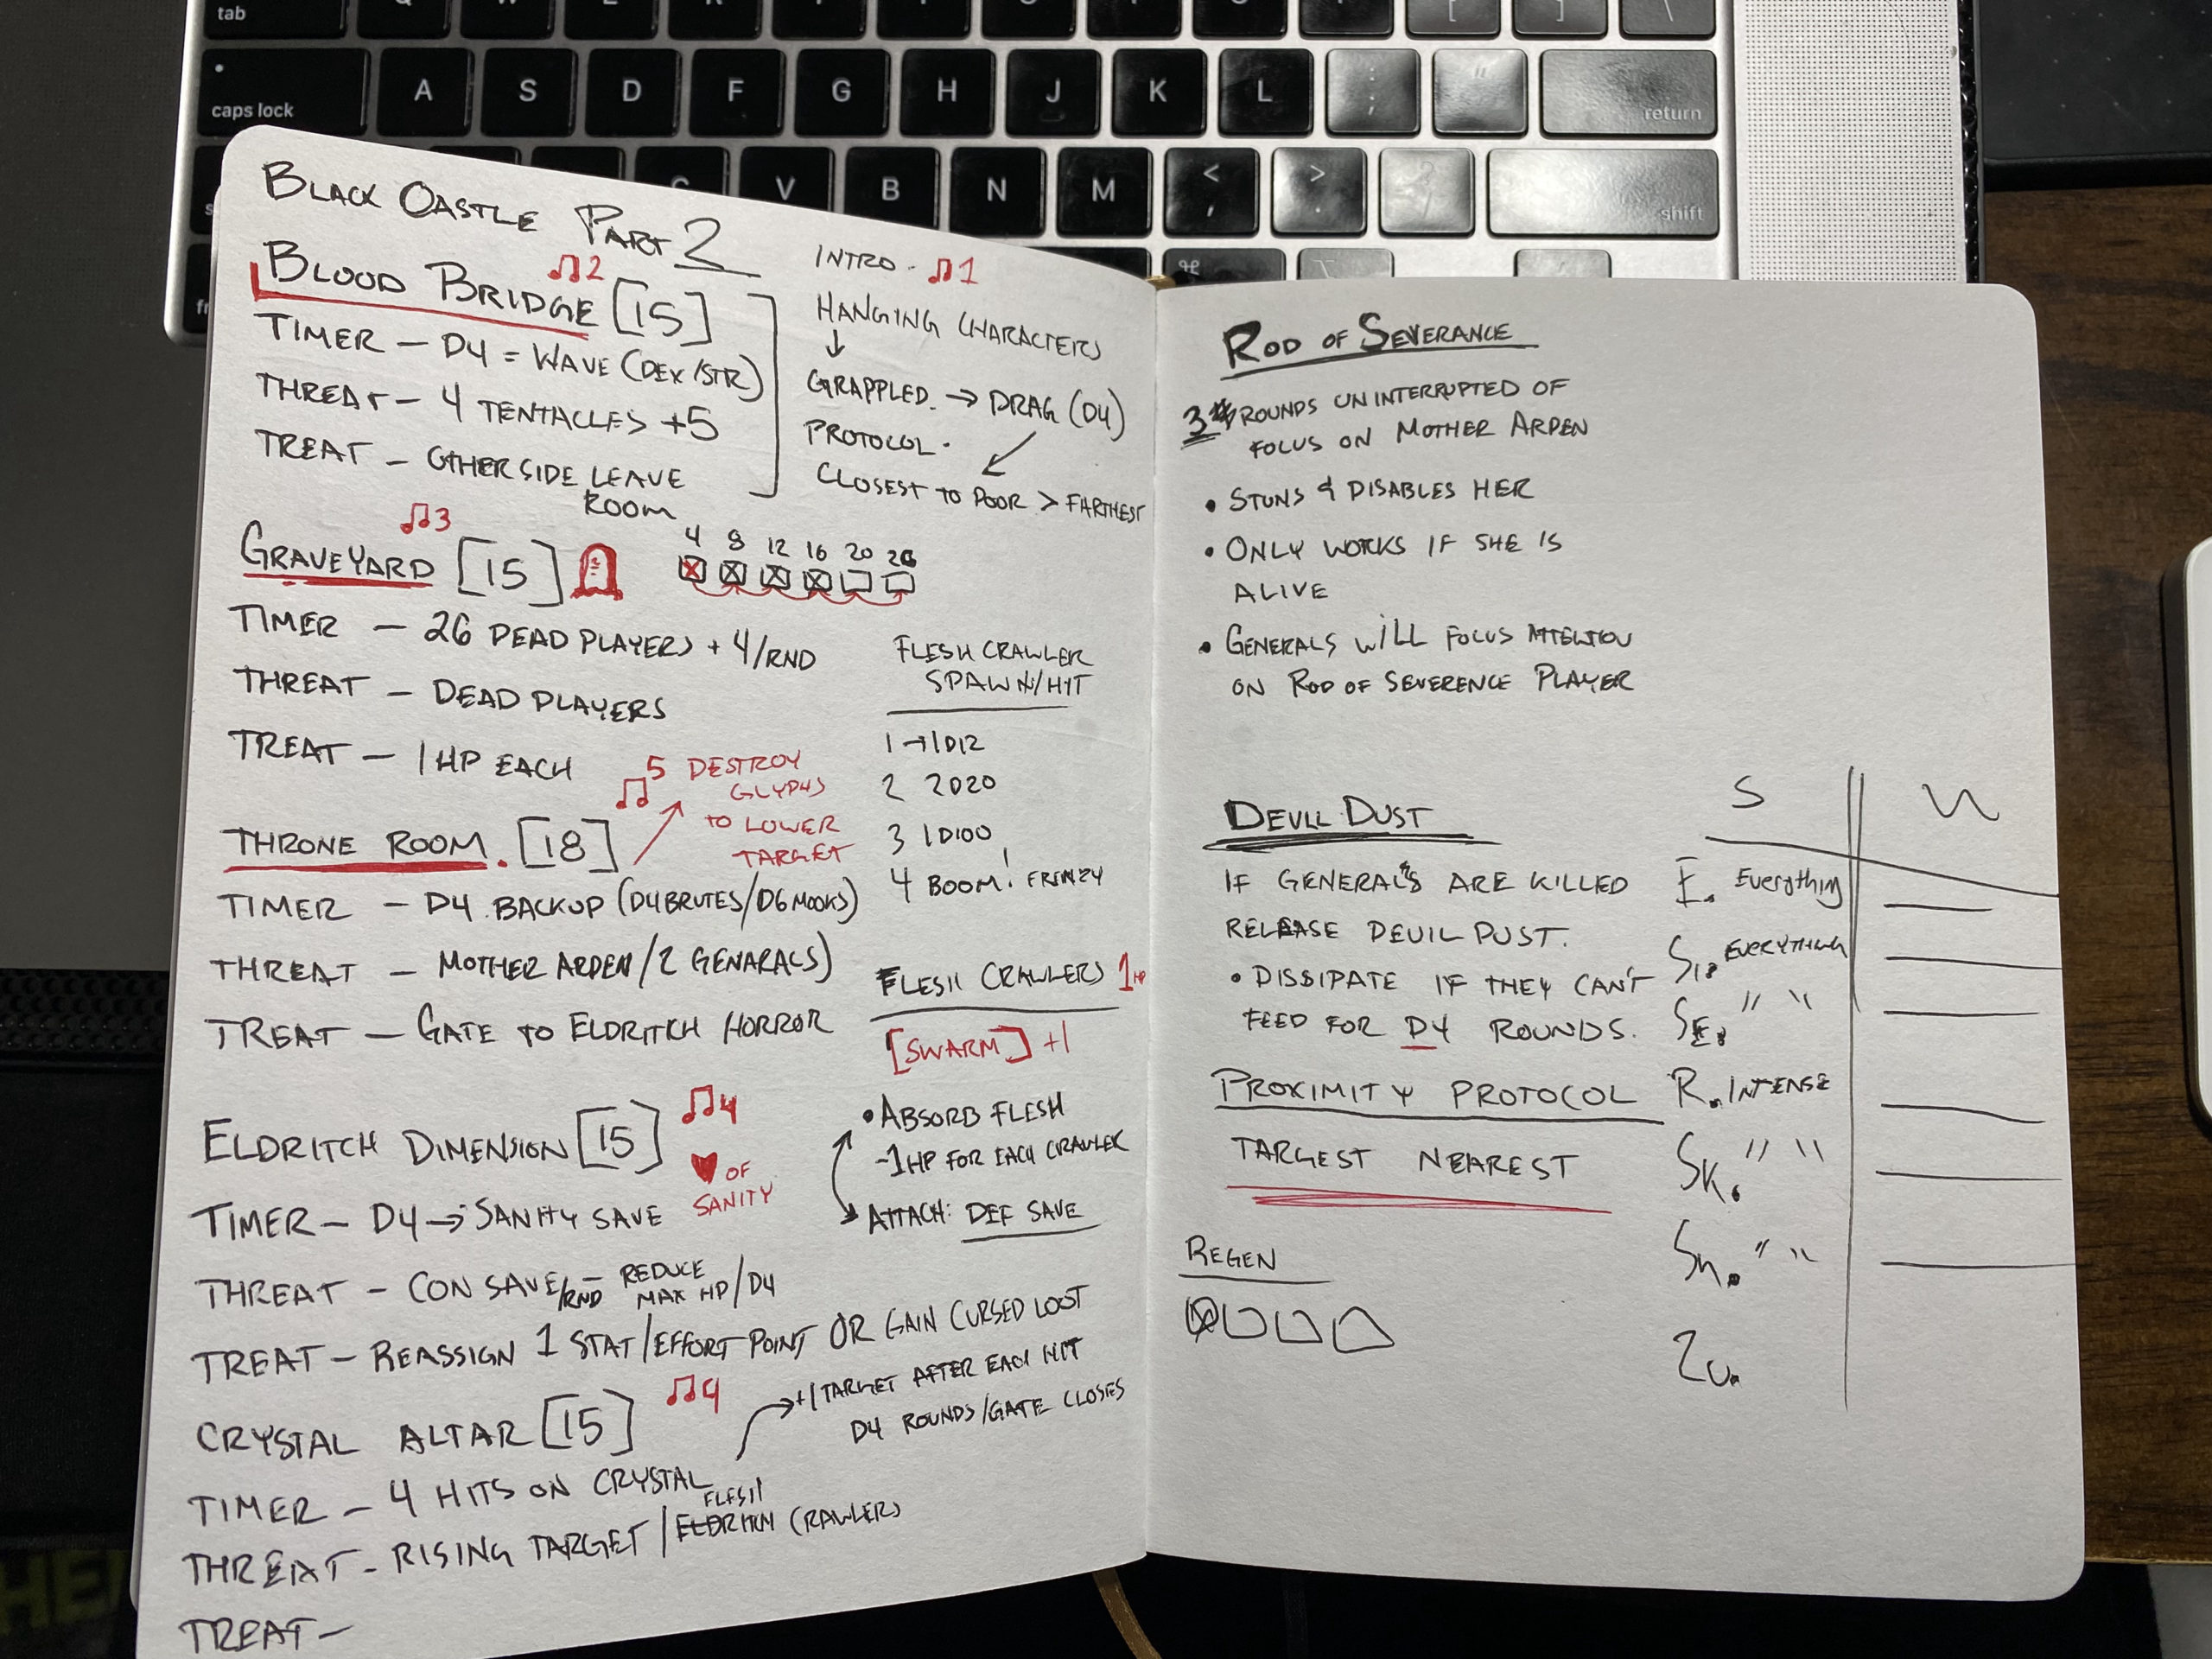 tab
Q W E R T Y U I O P [ ] \
caps lock A S D F G H J K L ; : ' " return
C V B N M < , > . ? / shift
⌘
BLACK CASTLE PART 2
BLOOD BRIDGE [15] ♫2
TIMER — D4 = WAVE (DEX/STR)
THREAT — 4 TENTACLES +5
TREAT — OTHERSIDE LEAVE
ROOM
INTRO - ♫1
HANGING CHARACTERS
↓
GRAPPLED. → DRAG (D4)
PROTOCOL.
CLOSEST TO POOR > FARTHEST
GRAVEYARD [15] ♫3
4 8 12 16 20 26
TIMER — 26 DEAD PLAYERS + 4/RND
THREAT — DEAD PLAYERS
TREAT — 1 HP EACH
FLESH CRAWLER
SPAWN/HIT
1 → 1D12
2 2D20
3 1D100
4 BOOM! FRENZY
THRONE ROOM. [18] ♫5
DESTROY
GLYPHS
TO LOWER
TARGET
TIMER — D4 BACKUP (D4BRUTES/D6MOOKS)
THREAT — MOTHER ARDEN/2 GENARALS)
TREAT — GATE TO ELDRITCH HORROR
FLESH CRAWLERS 1HP
[SWARM] +1
• ABSORB FLESH
-1HP FOR EACH CRAWLER
ATTACH: DEF SAVE
ELDRITCH DIMENSION [15] ♫4
♥ OF
SANITY
TIMER — D4 → SANITY SAVE
THREAT — CON SAVE/RND — REDUCE
MAX HP/D4
TREAT — REASSIGN 1 STAT/EFFORT POINT OR GAIN CURSED LOOT
CRYSTAL ALTAR [15] ♫4
→ +1 TARGET AFTER EACH HIT
D4 ROUNDS/GATE CLOSES
TIMER — 4 HITS ON CRYSTAL
FLESH
THREAT — RISING TARGET/ELDRITCH CRAWLERS
TREAT —
ROD OF SEVERANCE
3 ROUNDS UNINTERRUPTED OF
FOCUS ON MOTHER ARDEN
• STUNS & DISABLES HER
• ONLY WORKS IF SHE IS
ALIVE
• GENERALS WILL FOCUS ATTENTION
ON ROD OF SEVERENCE PLAYER
DEVIL DUST
IF GENERALS ARE KILLED
RELEASE DEVIL DUST.
• DISSIPATE IF THEY CAN'T
FEED FOR D4 ROUNDS.
PROXIMITY PROTOCOL
TARGEST NEAREST
REGEN
S
E. Everything
EVERYTHING
SE. " "
R. INTENSE
SK. " "
Sn. " "
Zu.